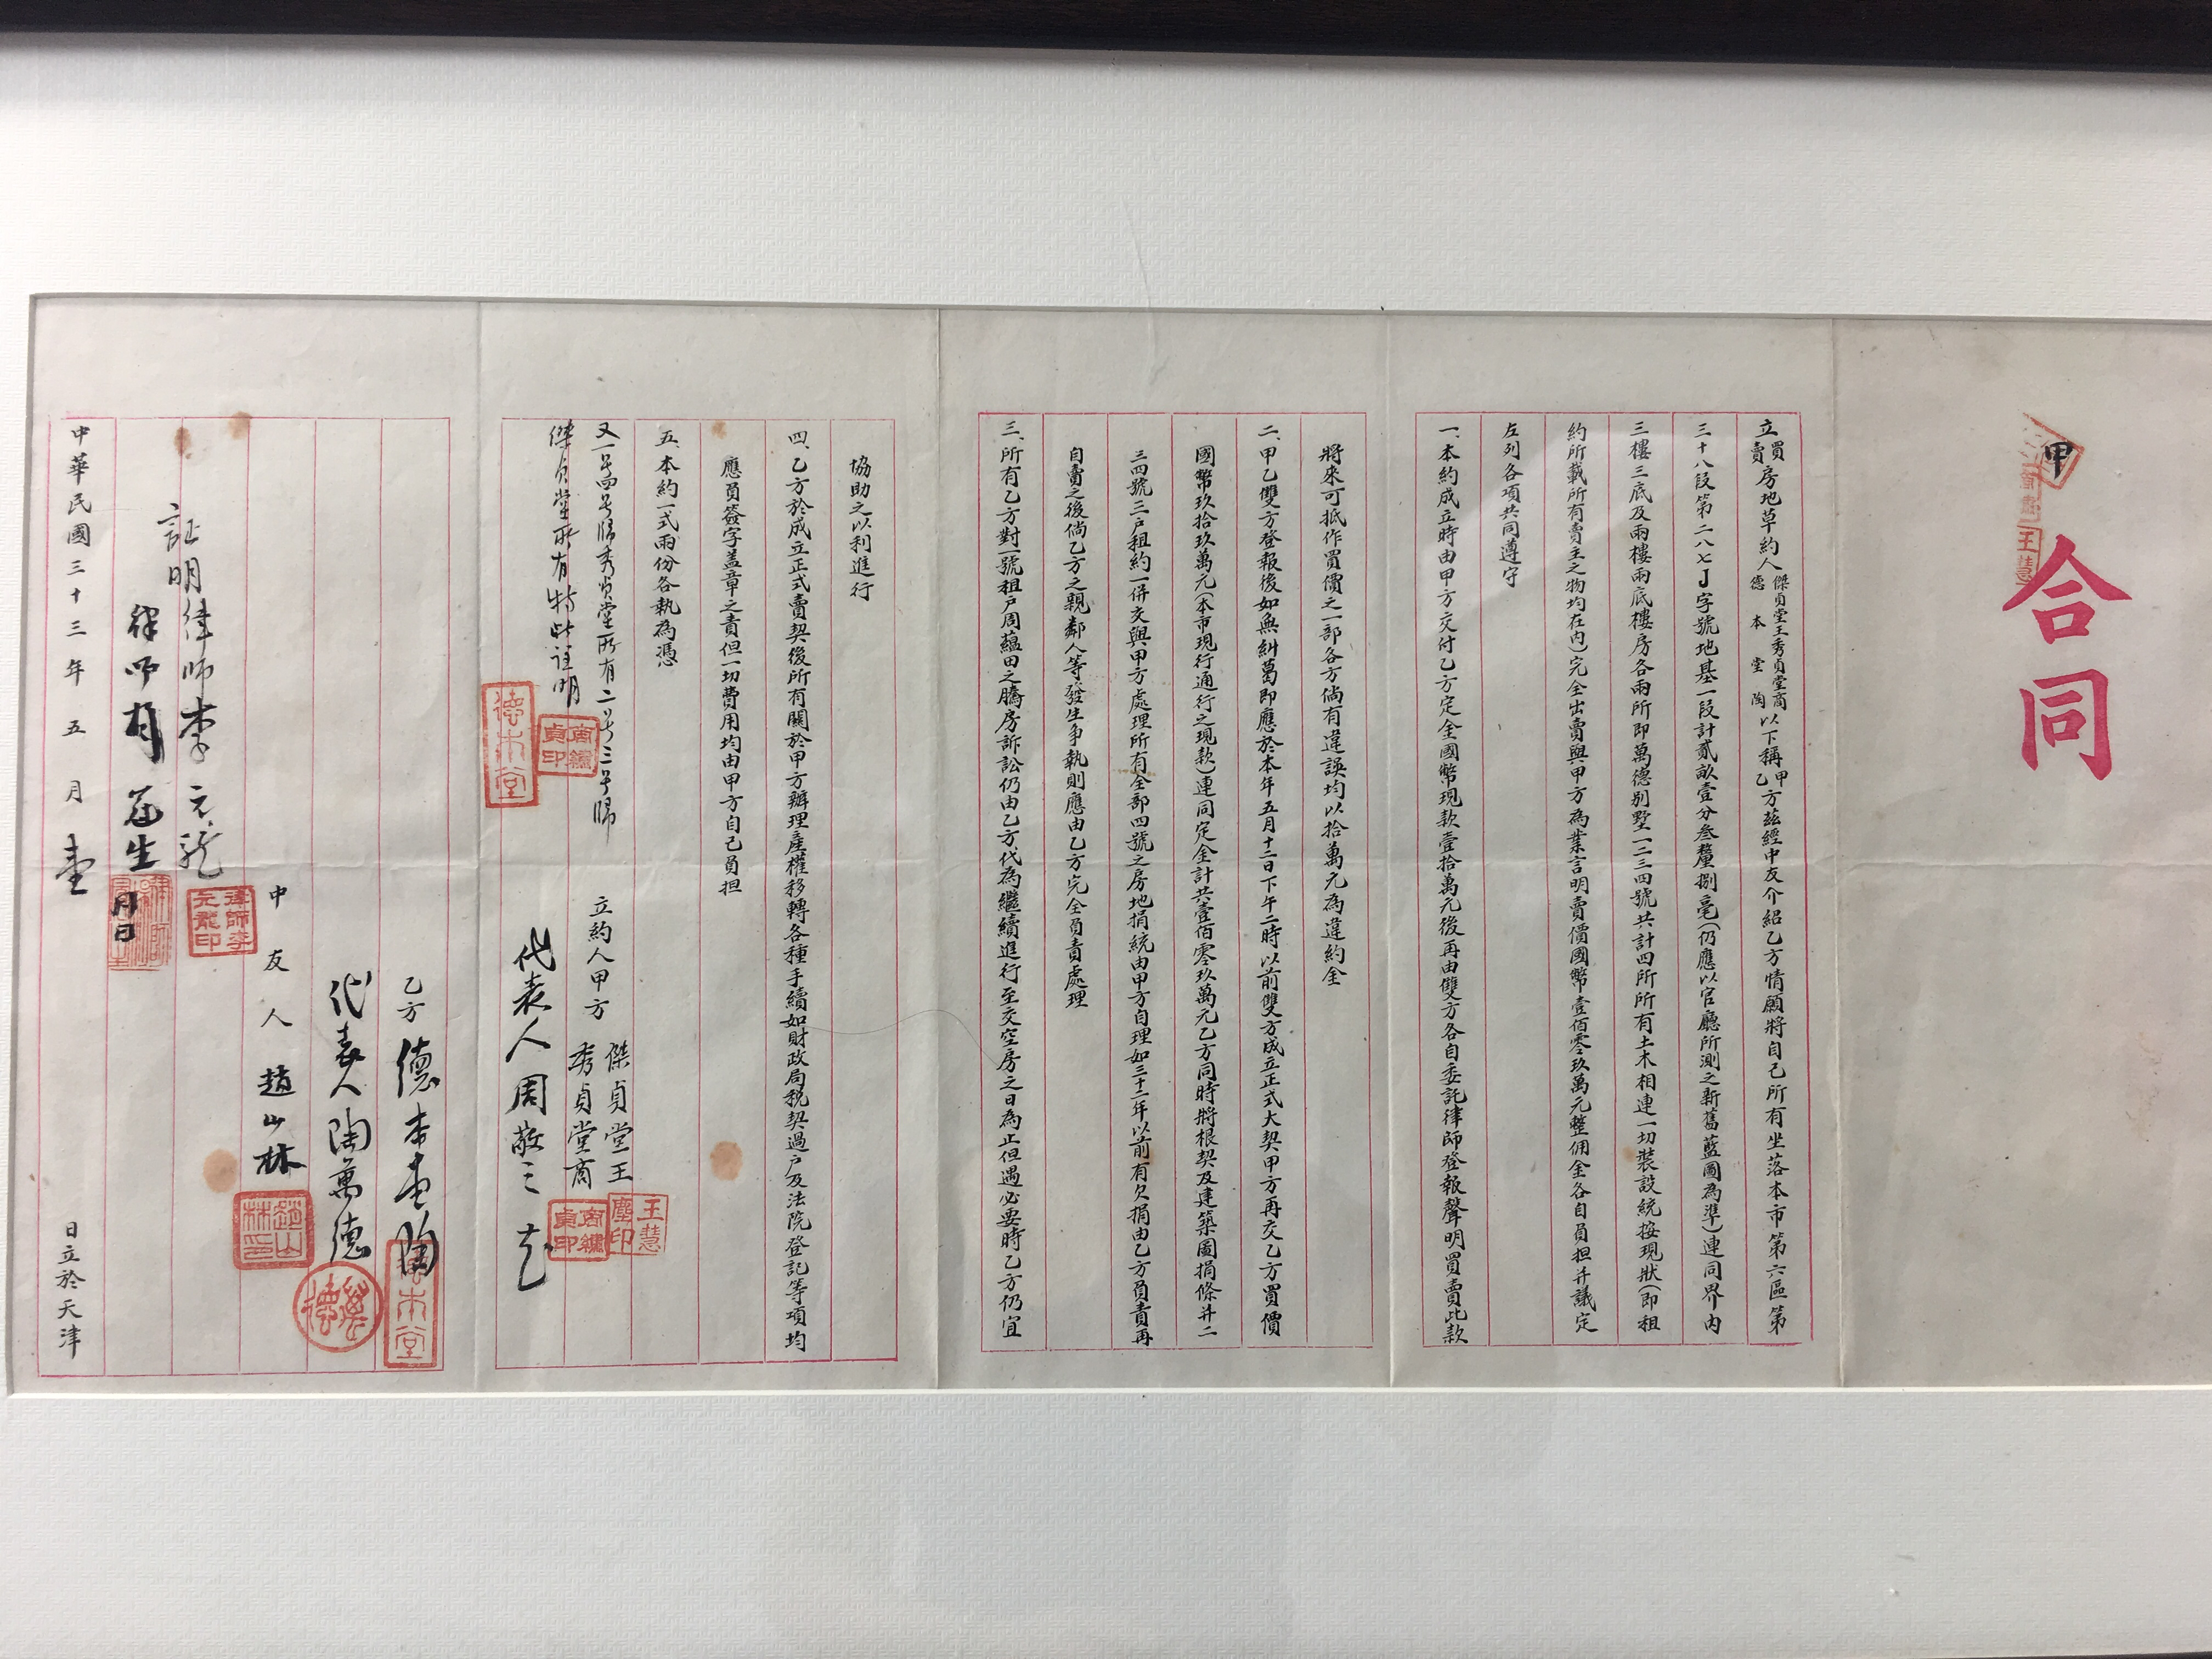 甲
合同
立買賣房地草約人傑貞堂王秀貞堂商德本堂陶以下稱甲乙方茲經中友介紹乙方情願將自己所有坐落本市第六區第
三十八段第二八七丁字號地基一段計貳畝壹分叁釐捌毫(仍應以官廳所測之新舊藍圖為準)連同界內
三樓三底及兩樓兩底樓房各兩所即萬德別墅一二三四號共計四所所有土木相連一切裝設統按現狀(即租
約所載所有賣主之物均在內)完全出賣與甲方為業言明賣價國幣壹佰零玖萬元整佣金各自員担并議定
左列各項共同遵守
一、本約成立時由甲方交付乙方定金國幣現款壹拾萬元後再由雙方各自委託律師登報聲明買賣此款
將來可抵作買價之一部各方倘有違誤均以拾萬元為違約金
二、甲乙雙方登報後如無糾葛即應於本年五月十二日下午二時以前雙方成立正式大契甲方再交乙方買價
國幣玖拾玖萬元(本市現行通行之現款)連同定金計共壹佰零玖萬元乙方同時將根契及建築圖捐條并二
三四號三户租約一併交與甲方處理所有全部四號之房地捐統由甲方自理如三十三年以前有欠捐由乙方負責再
自賣之後倘乙方之親鄰人等發生爭執則應由乙方完全負責處理
三、所有乙方對一號租户周蘊田之騰房訴訟仍由乙方代為繼續進行至交空房之日為止但遇必要時乙方仍宜
協助之以利進行
四、乙方於成立正式賣契後所有關於甲方辦理產權移轉各種手續如財政局税契過户及法院登記等項均
應負簽字盖章之責但一切費用均由甲方自己負担
五、本約一式兩份各執為憑
又一号四号歸秀貞堂所有二号三号歸
傑貞堂所有特此註明
德本堂
商繡貞印
立約人甲方 傑貞堂王
秀貞堂商
王慧塵印
商繡貞印
代表人周敬之
乙方 德本堂陶
德本堂
代表人陶萬德
萬德
中友人 趙山林
趙山林印
証明律師李元龍
律師李元龍印
律師
中華民國三十三年五月 日立於天津